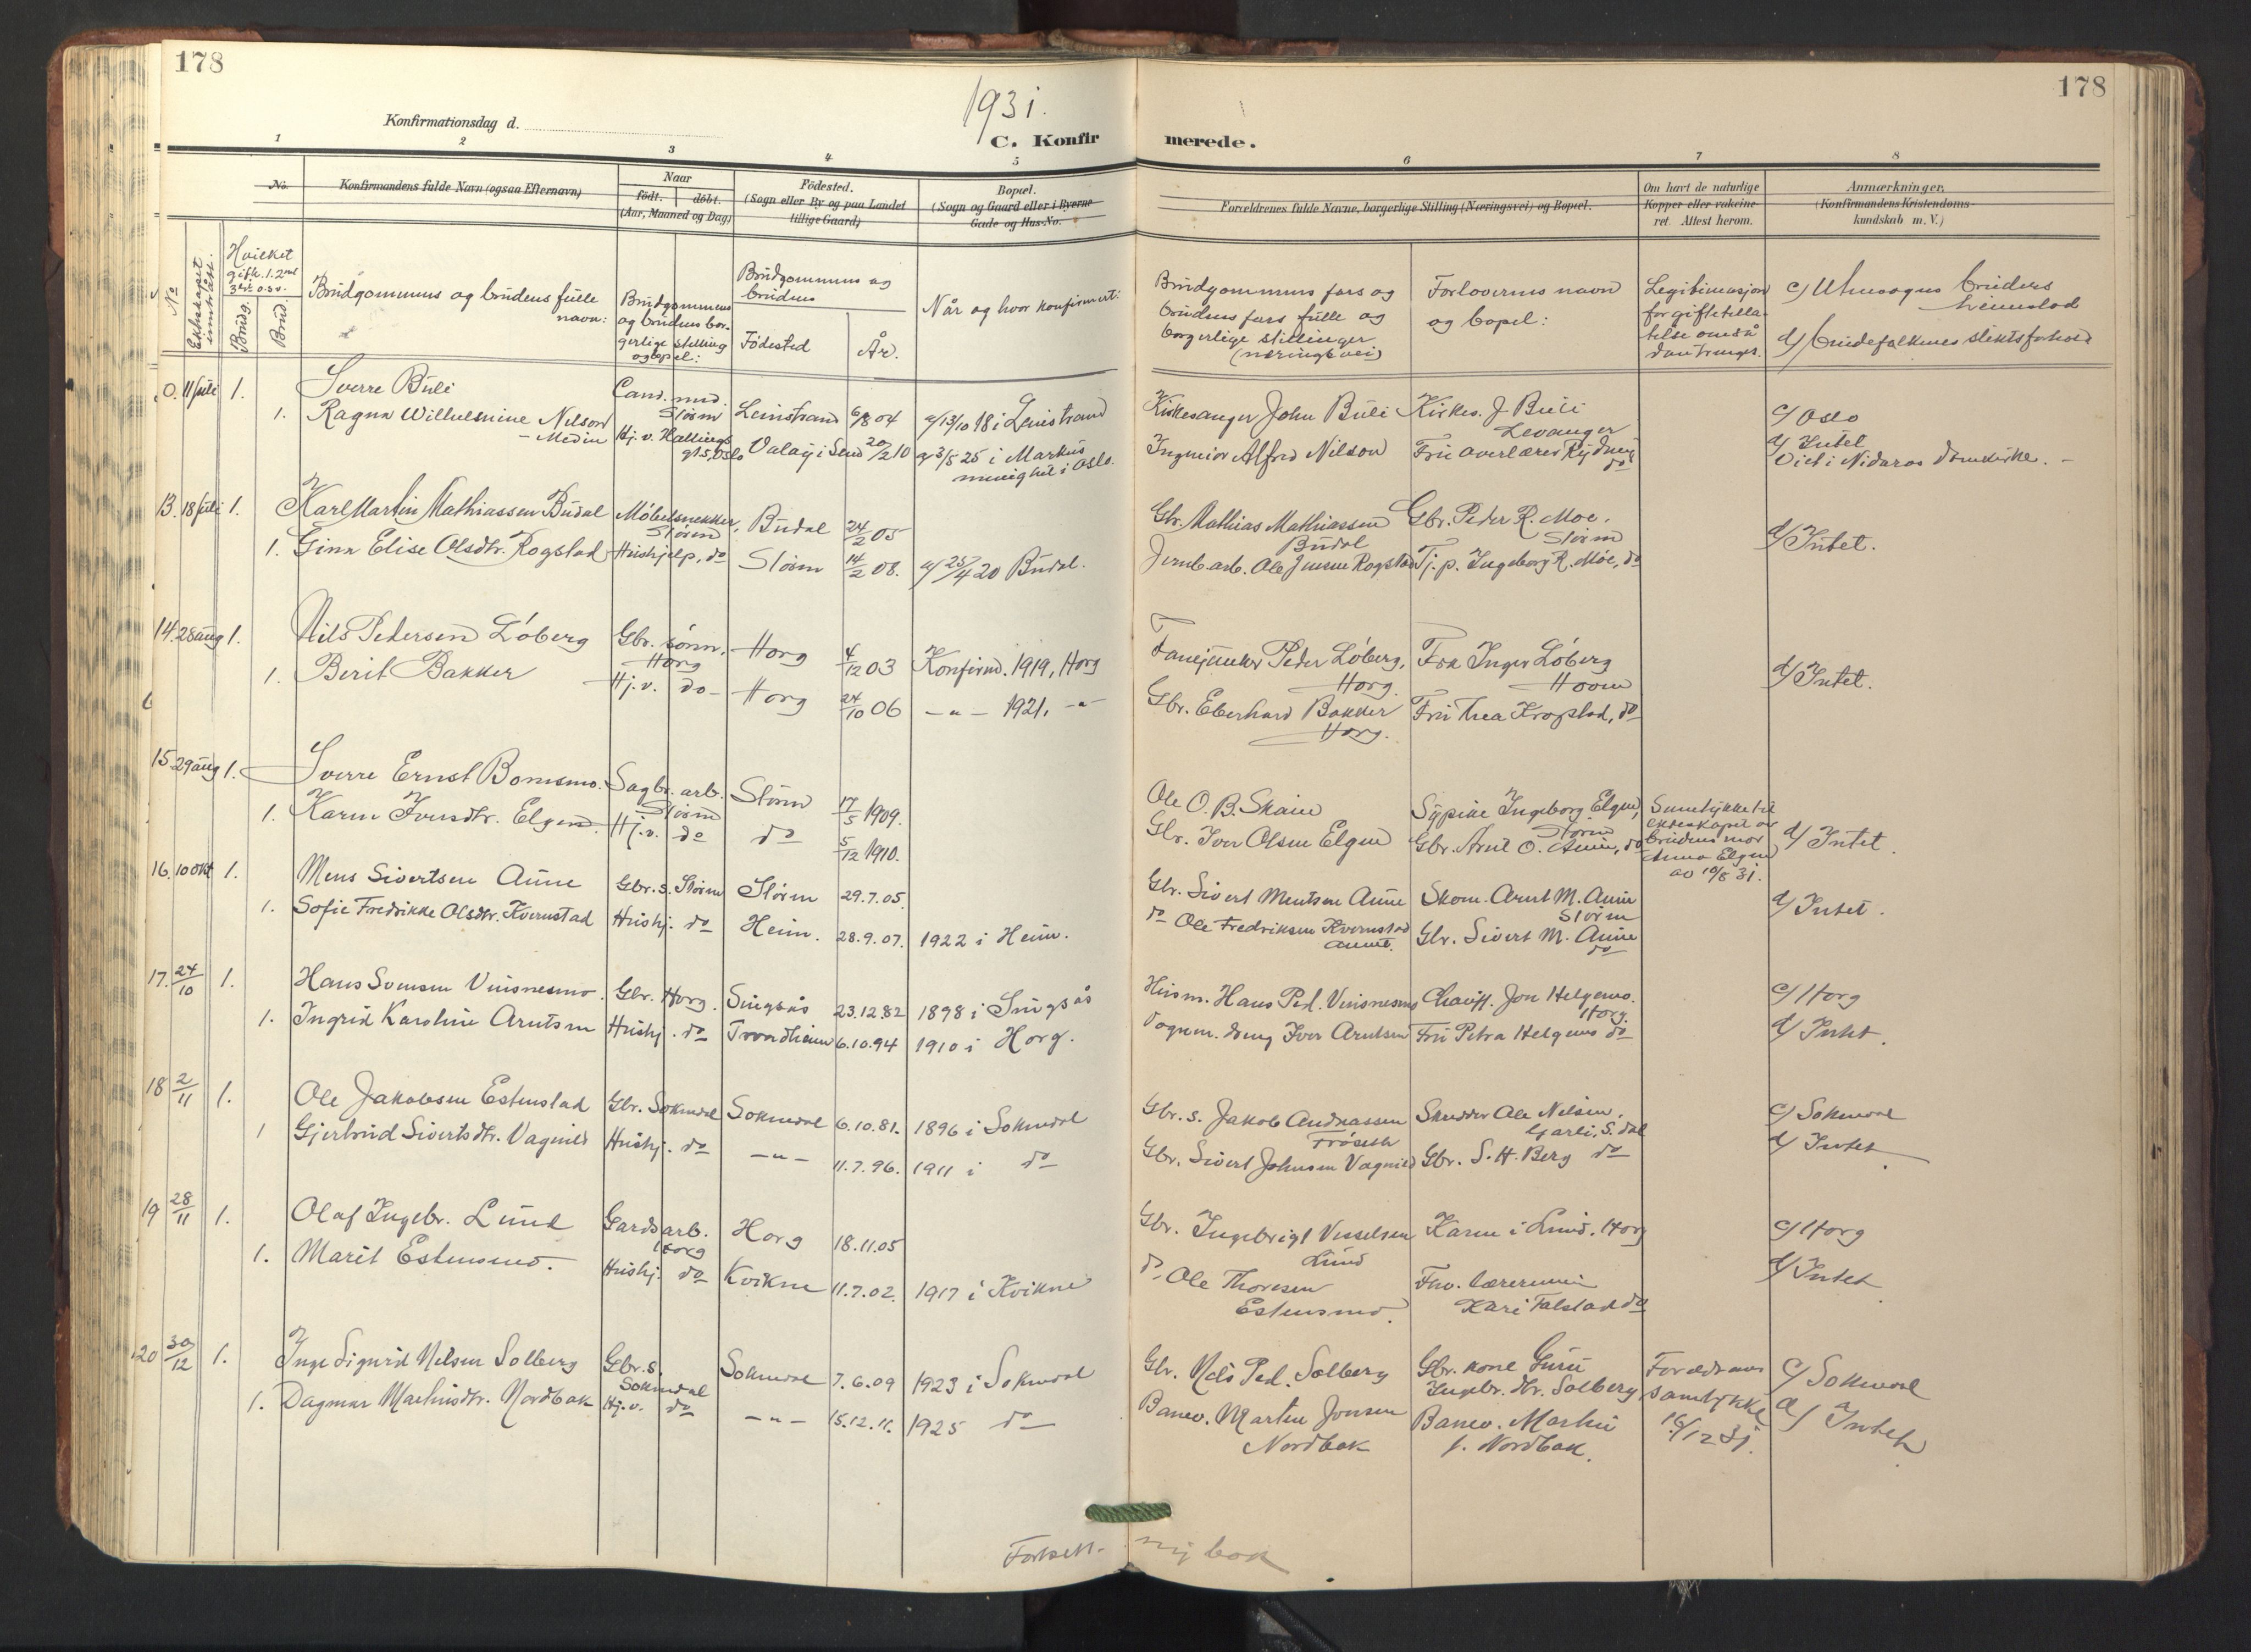 178
178
1931.
Konfirmationsdag d.
C. Konfir merede.
1 2 3 4 5 6 7 8
No.
Konfirmandens fulde Navn (ogsaa Efternavn)
Naar
født. døbt.
(Aar, Maaned og Dag)
Fødested.
(Sogn eller By og paa Landet
tillige Gaard)
Bopæl.
(Sogn og Gaard eller i Byerne
Gade og Hus-No.
Forældrenes fulde Navne, borgerlige Stilling (Næringsvei) og Bopæl.
Om havt de naturlige
Kopper eller vakcine-
ret. Attest herom.
Anmærkninger.
(Konfirmandens Kristendoms-
kundskab m. V.)
No
Ekteskapet
inntrått.
Hvilket
gifte. 1. 2net
3dje o.s.v.
Brudg.
Brud.
Brudgommens og brudens fulle
navn:
Brudgommens
og brudens bor-
gerlige stilling
og bopel:
Brudgommens og
brudens
Födested
År.
Når og hvor konfirmert:
Brudgommens fars og
brudens fars fulle og
borgerlige stillinger
(næringsvei)
Forlovernes navn
og bopel:
Legitimasjon
for giftetilla-
telse om så-
dan trenges.
c/ Utensogns bruders
heimstad
d/ brudefolkenes slektsforhold
0. 11 juli 1. Sverre Buli Cand. med. Støren Leinstrand 6/8 04 a/ 13/10 18 i Leinstrand Kirkesanger John Buli Kirkes. J. Buli Levanger c/ Oslo
1. Ragna Wilhelmine Nilson - Medin Hj. v. Hallings gt. 5, Oslo 20/2 10 3/5 25 i Markus menighet i Oslo. Ingeniør Alfred Nilson Fru overlærer do d/ Intet
Viet i Nidaros domkirke. -
13. 18 juli 1. Karl Martin Mathiassen Budal Møbelsnekker, Støren Budal 24/2 05 Gbr. Mathias Mathiassen Budal Gbr. Peder R. Moe, Støren
1. Ginn Elise Olsdtr. Rogstad Hushjelp, do Støren 14/2 08. a/ 25/4 20 Budal. Jernb. arb. Ole Jensen Rogstad Tj. p. Ingeborg R. Moe, do d/ Intet.
14. 28 aug 1. Nils Pedersen Løberg Gbr. sønn, Horg Horg 4/12 03 Konfirm. 1919, Horg Fanejunker Peder Løberg, Horg. Fra Inger Løberg Hovin d/ Intet.
1. Berit Bakker Hj. v. do Horg 24/10 06 - " - 1921, - " - Gbr. Eberhard Bakker Horg. Fru Thea Krogstad, do
15. 29 aug 1. Sverre Ernst Bonesmo. Sagbr. arb. Støren Støren 17/5 1909. Ole O. B. Skaue Sypike Ingeborg Elgen, Støren Samtykke til
1. Karen Iversdtr. Elgen. Hj. v. do do 5/12 1910. Gbr. Iver Olsen Elgen Gbr. Arnt O. Aune, do ekteskapet av
brudens mor
Anna Elgen
av 10/8 31. d/ Intet.
16. 10 okt 1. Mens Sivertsen Aune Gbr. s. Støren Støren 29.7.05. Gbr. Sivert Mentsen Aune Skom. Arnt M. Aune Støren d/ Intet.
1. Sofie Fredrikke Olsdtr. Kvernstad Hushj. do Heim. 28.9.07. 1922 i Heim. do Ole Fredriksen Kvernstad Gbr. Sivert M. Aune do
17. 24/10 1. Hans Svensen Vinsnesmo. Gbr. Horg. Singsås 23.12.82 1898 i Singsås Husm. Hans Ped. Vinsnesmo Chauff. Jon Helgemo. Horg. c/ Horg
1. Ingrid Karoline Arntsen Hushj. do Trondheim 6.10.94 1910 i Horg. Vognm. dreng Iver Arntsen Fru Petra Helgemo do d/ Intet.
18 2/11 1. Ole Jakobsen Estenstad Gbr. Soknedal Soknedal 6.10.81. 1896 i Soknedal Gbr. s. Jakob Andreassen Frøseth Skredder Ole Nilsen, Garli, S. dal c/ Soknedal
1 Gjertrud Sivertsdtr. Vagnild Hushj. do - " - 11.7.96. 1911 i do Gbr. Sivert Johnsen Vagnild Gbr. S. H. Berg do d/ Intet.
19 28/11 1. Olaf Ingebr. Lund Gardsarb. Horg Horg 18.11.05 Gbr. Ingebrigt Vesselsen Lund Karen i Lund, Horg c/ Horg
1. Marit Estensmo. Hushj. do Kvikne 11.7.02. 1917 i Kvikne do Ole Thoresen Estensmo. Fhv. lærerinne Kari Talstad do d/ Intet.
20 30/12 1. Inge Sigurd Nilsen Solberg Gbr. s. Soknedal Soknedal 7.6.09 1923 i Soknedal Gbr. Nils Ped. Solberg Gbr. kone Guru Ingebr. dtr. Solberg Foreldrenes c/ Soknedal
1. Dagmar Martinsdtr. Nordbak Hj. v. do - " - 15.12.11. 1925 do Banev. Martin Jonsen Nordbak Banev. Martin J. Nordbak. samtykke
16/12 31. d/ Intet
Fortsett. ny bok